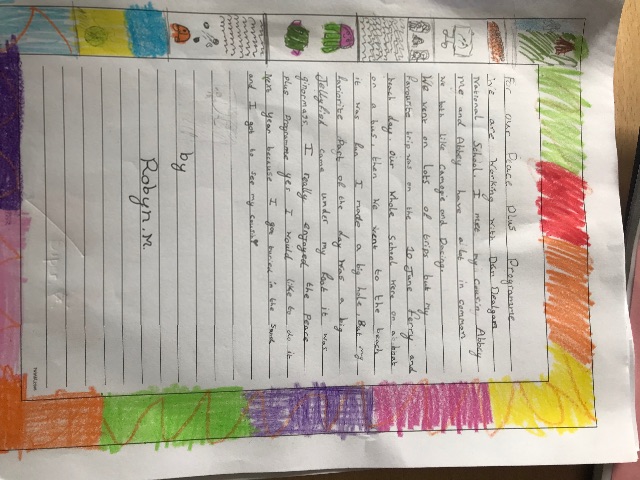 For our Peace Plus Programme
we are working with Dun Dealgan
National School. I met my cousin Abbey
me and Abbey have alot in common
we both like camogie and Dacing.
We went on lots of trips but my
favourite trip was on the 10 June ferry and
beach day, our whole school were on a boat
on a bus, then we went to the beach
it was fun I made a big hole. But my
favourite Part of the day was a big
Jellyfish came under my boat it was
ginormass. I really engoyed the Peace
plus Programme yes I would like to do it
next year because I got buried in the sand
and I got to see my cousin
by
Robyn.M.
twinkl.com